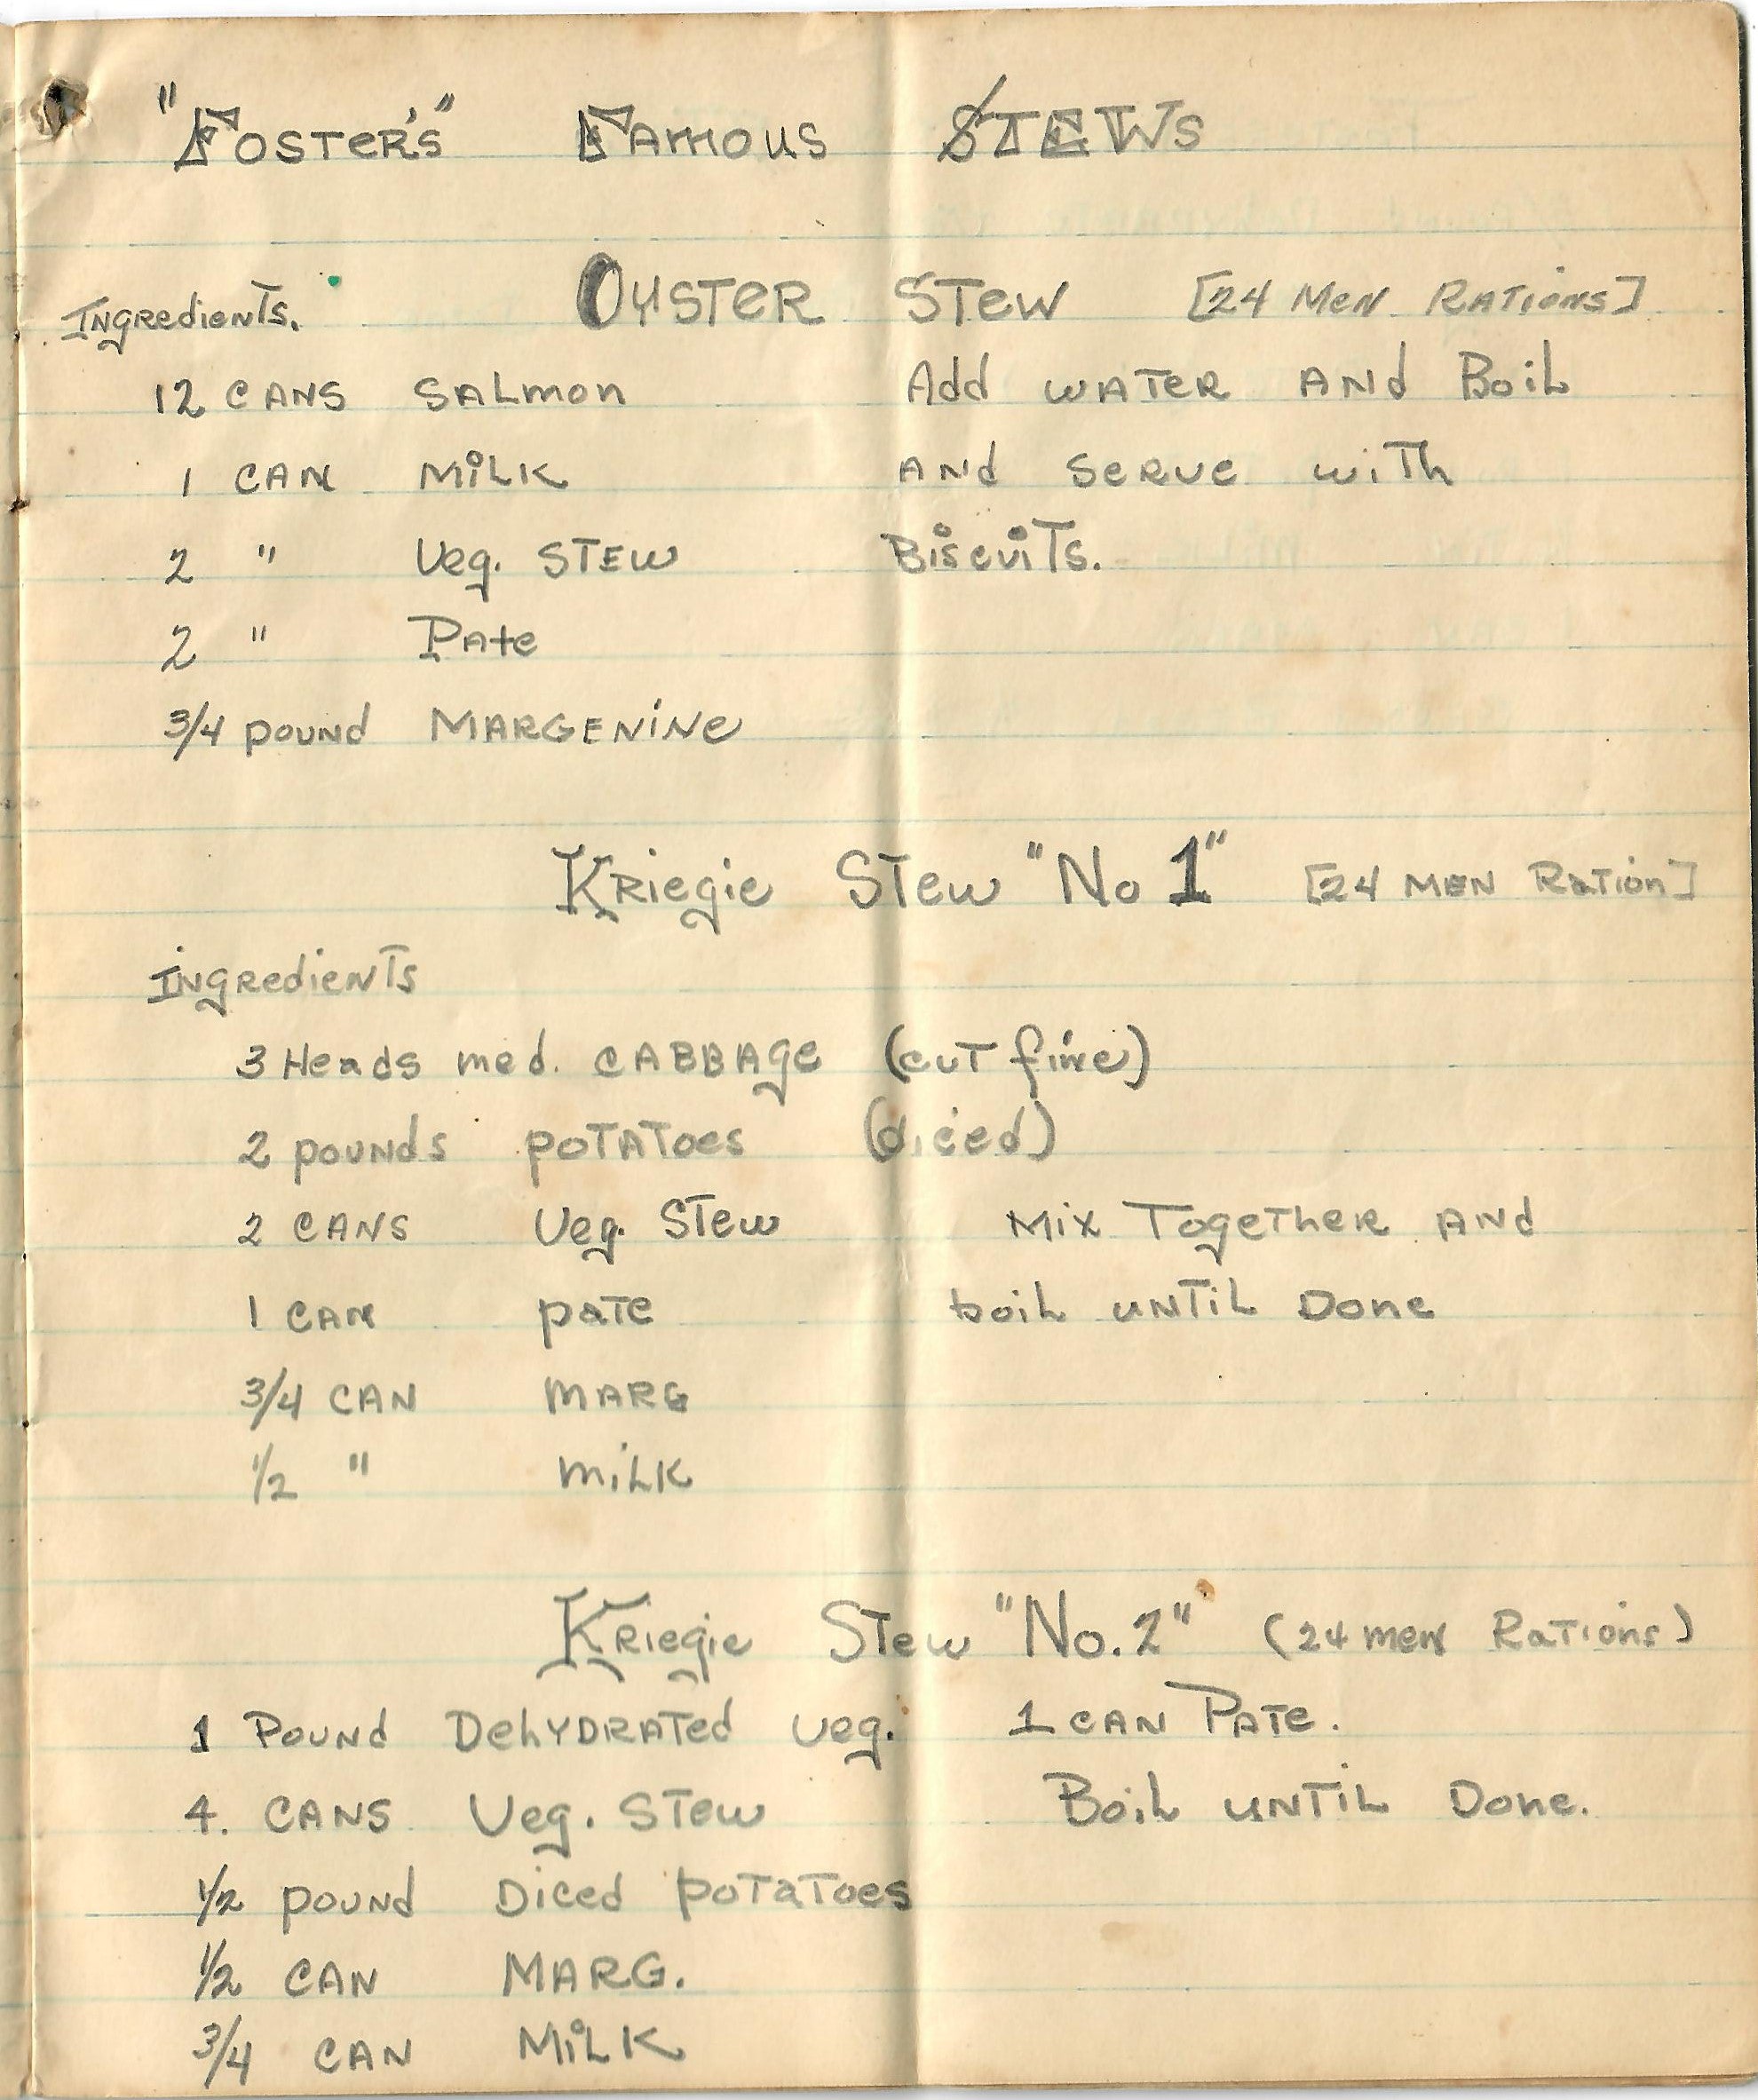 "Foster's" Famous Stews
Oyster Stew [24 Men Rations]
Ingredients.
12 cans Salmon
Add water and Boil
1 can Milk
and serve with
2 " Veg. Stew
Biscuits.
2 " Pate
3/4 pound Margenine
Kriegie Stew "No 1" [24 Men Ration]
Ingredients
3 Heads med. Cabbage (cut fine)
2 pounds potatoes (diced)
2 cans Veg. Stew
Mix Together and
1 can pate
boil until Done
3/4 can Marg
1/2 " milk
Kriegie Stew "No. 2" (24 men Rations)
1 Pound Dehydrated veg. 1 can Pate.
4. cans Veg. Stew
Boil until Done.
1/2 pound Diced potatoes
1/2 can Marg.
3/4 can Milk